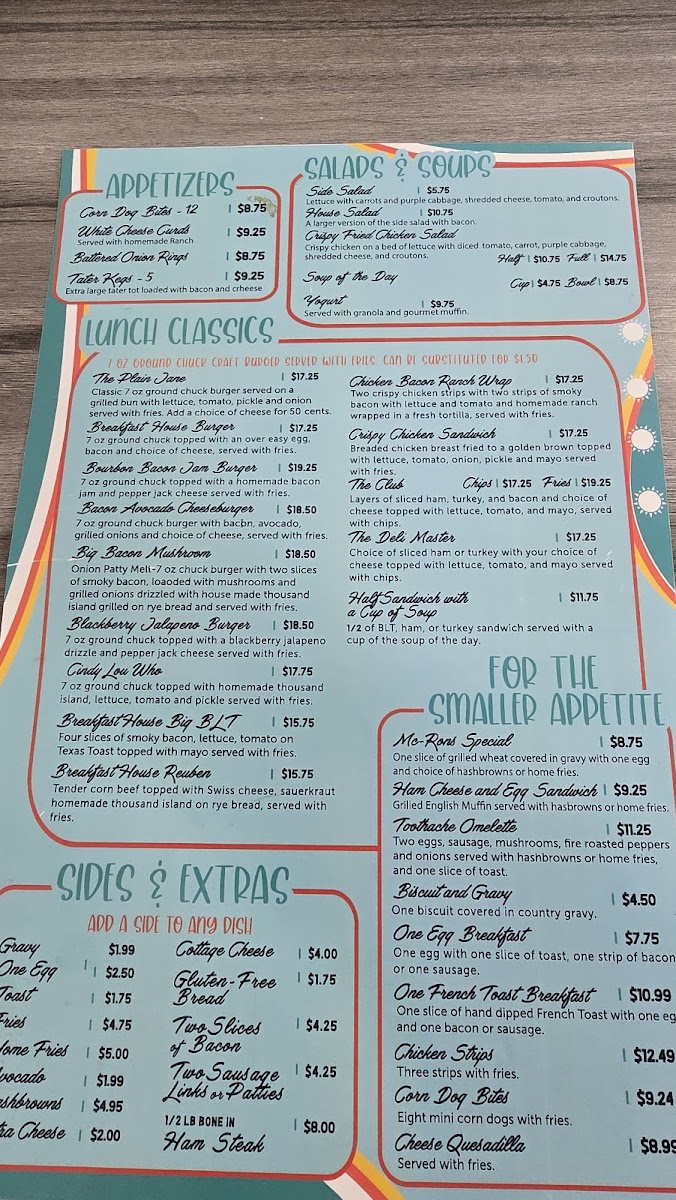 APPETIZERS
Corn Dog Bites - 12 | $8.75
White Cheese Curds | $9.25
Served with homemade Ranch
Battered Onion Rings | $8.75
Tater Kegs - 5 | $9.25
Extra large tater tot loaded with bacon and crheese
SALADS & SOUPS
Side Salad | $5.75
Lettuce with carrots and purple cabbage, shredded cheese, tomato, and croutons.
House Salad | $10.75
A larger version of the side salad with bacon.
Crispy Fried Chicken Salad
Crispy chicken on a bed of lettuce with diced tomato, carrot, purple cabbage,
shredded cheese, and croutons. Half | $10.75 Full | $14.75
Soup of the Day Cup | $4.75 Bowl | $8.75
Yogurt | $9.75
Served with granola and gourmet muffin.
LUNCH CLASSICS
7 OZ GROUND CHUCK CRAFT BURGER SERVED WITH FRIES. CAN BE SUBSTITUTED FOR $1.50
The Plain Jane | $17.25
Classic 7 oz ground chuck burger served on a
grilled bun with lettuce, tomato, pickle and onion
served with fries. Add a choice of cheese for 50 cents.
Breakfast House Burger | $17.25
7 oz ground chuck topped with an over easy egg,
bacon and choice of cheese, served with fries.
Bourbon Bacon Jam Burger | $19.25
7 oz ground chuck topped with a homemade bacon
jam and pepper jack cheese served with fries.
Bacon Avocado Cheeseburger | $18.50
7 oz ground chuck burger with bacon, avocado,
grilled onions and choice of cheese, served with fries.
Big Bacon Mushroom | $18.50
Onion Patty Melt-7 oz chuck burger with two slices
of smoky bacon, loaoded with mushrooms and
grilled onions drizzled with house made thousand
island grilled on rye bread and served with fries.
Blackberry Jalapeno Burger | $18.50
7 oz ground chuck topped with a blackberry jalapeno
drizzle and pepper jack cheese served with fries.
Cindy Lou Who | $17.75
7 oz ground chuck topped with homemade thousand
island, lettuce, tomato and pickle served with fries.
Breakfast House Big BLT | $15.75
Four slices of smoky bacon, lettuce, tomato on
Texas Toast topped with mayo served with fries.
Breakfast House Reuben | $15.75
Tender corn beef topped with Swiss cheese, sauerkraut
homemade thousand island on rye bread, served with
fries.
Chicken Bacon Ranch Wrap | $17.25
Two crispy chicken strips with two strips of smoky
bacon with lettuce and tomato and homemade ranch
wrapped in a fresh tortilla, served with fries.
Crispy Chicken Sandwich | $17.25
Breaded chicken breast fried to a golden brown topped
with lettuce, tomato, onion, pickle and mayo served
with fries.
The Club Chips | $17.25 Fries | $19.25
Layers of sliced ham, turkey, and bacon and choice of
cheese topped with lettuce, tomato, and mayo, served
with chips.
The Deli Master | $17.25
Choice of sliced ham or turkey with your choice of
cheese topped with lettuce, tomato, and mayo served
with chips.
Half Sandwich with | $11.75
a Cup of Soup
1/2 of BLT, ham, or turkey sandwich served with a
cup of the soup of the day.
FOR THE
SMALLER APPETITE
Mc-Rons Special | $8.75
One slice of grilled wheat covered in gravy with one egg
and choice of hashbrowns or home fries.
Ham Cheese and Egg Sandwich | $9.25
Grilled English Muffin served with hasbrowns or home fries.
Toothache Omelette | $11.25
Two eggs, sausage, mushrooms, fire roasted peppers
and onions served with hashbrowns or home fries,
and one slice of toast.
Biscuit and Gravy | $4.50
One biscuit covered in country gravy.
One Egg Breakfast | $7.75
One egg with one slice of toast, one strip of bacon
or one sausage.
One French Toast Breakfast | $10.99
One slice of hand dipped French Toast with one eg
and one bacon or sausage.
Chicken Strips | $12.49
Three strips with fries.
Corn Dog Bites | $9.24
Eight mini corn dogs with fries.
Cheese Quesadilla | $8.99
Served with fries.
SIDES & EXTRAS
ADD A SIDE TO ANY DISH
Gravy $1.99
One Egg | $2.50
Toast | $1.75
Fries | $4.75
ome Fries | $5.00
vocado | $1.99
ashbrowns | $4.95
ra Cheese | $2.00
Cottage Cheese | $4.00
Gluten-Free | $1.75
Bread
Two Slices | $4.25
of Bacon
Two Sausage | $4.25
Links or Patties
1/2 LB BONE IN | $8.00
Ham Steak